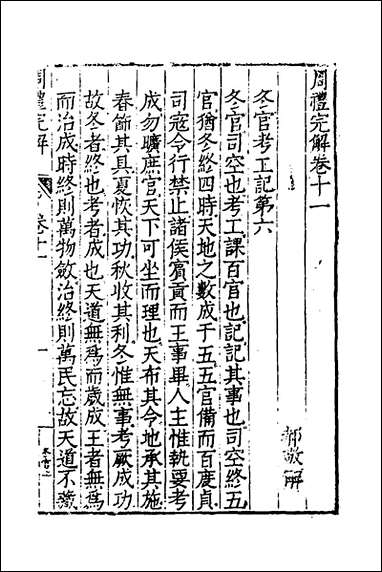 周禮完解卷十一
郝敬解
冬官考工記第六
冬官司空也考工課百官也記記其事也司空終五
官猶冬終四時天地之數成于五五官備而百度貞
司寇令行禁止諸侯賓貢而王事畢人主惟執要考
成勿曠庶官天下可坐而理也天布其令地承其施
春飭其具夏恢其功秋收其利冬惟無事考厥成功
故冬者終也考者成也天道無爲而歲成王者無爲
而治成時終則萬物斂治終則萬民忘故天道不蔵
周禮完解
卷十一
一